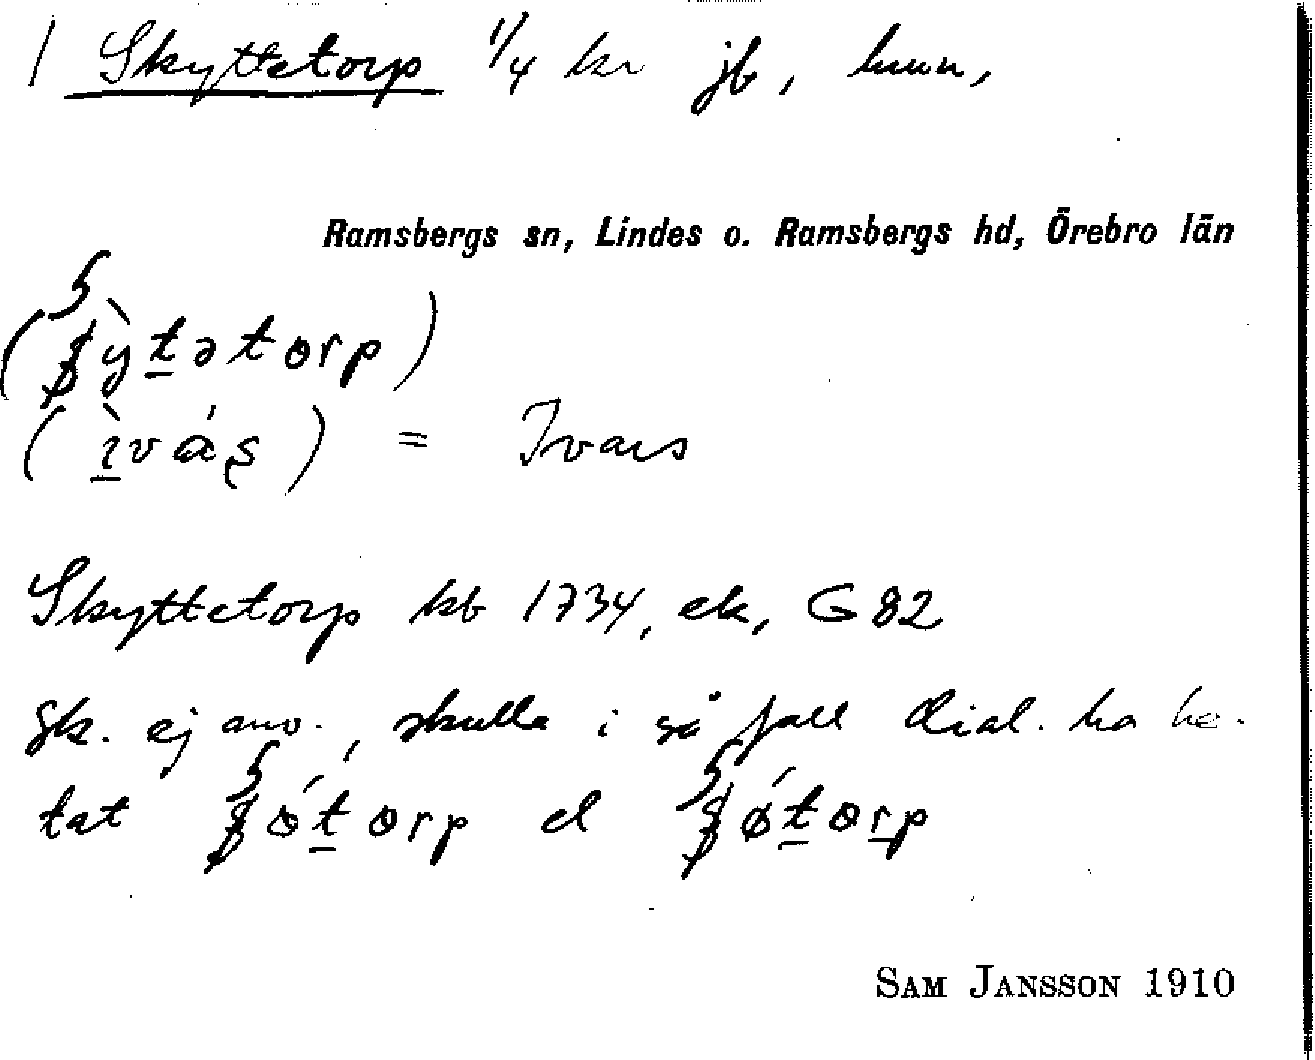 / Skyttetorp 1/4 kr jb,
Ramsbergs sn, Lindes o. Ramsbergs hd, Örebro län
( ỳt̲ətorp)
(ı̲̀váş) = Ivars
Skyttetorp kb 1734, ek, G 82
Sk. ej anv., skulle i så fall dial. ha he-
tat el
SAM JANSSON 1910